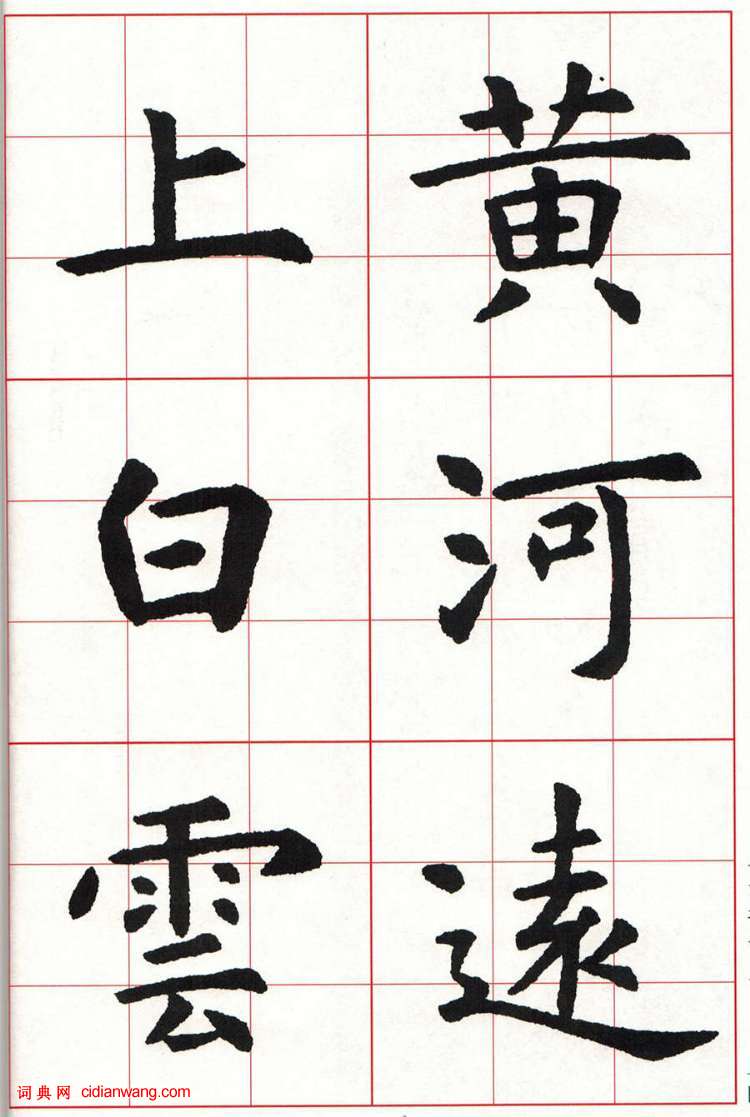 黄河遠
上白雲
词典网 cidianwang.com